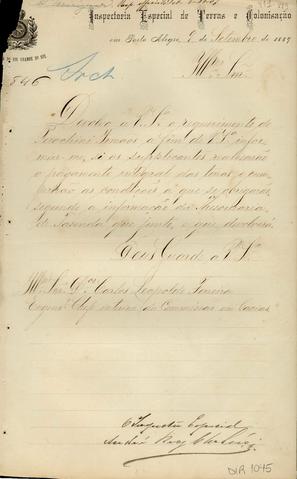 Inspectoria Especial de Terras e Colonisação
em Porto Alegre, 9 de Setembro de 1889
RIO GRANDE DO SUL
846
Illmo Snr.
Devolvo a V.Sa o requerimento de
Irmãos a fim de V.Sa infor-
mar-me, si os supplicantes realisarão
o pagamento integral das terras e cum-
prirão as condições á que se obrigarão,
segundo a informação da Thesouraria
de Fazenda, que junto, e que devolverá.
Deus Guarde a V.Sa
Illmo Snr. Dr. Carlos Leopoldo
Engenro Chefe interino da Commissão em Caxias
O Inspector Especial
DIR 1045